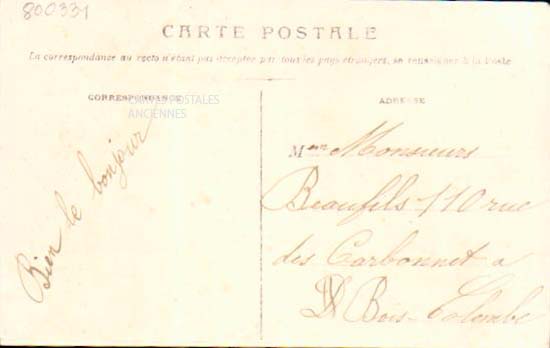 800331
CARTE POSTALE
La correspondance au recto n'étant pas acceptée par tous les pays étrangers, se renseigner à la Poste
CORRESPONDANCE
CARTES POSTALES
ANCIENNES
Bien le bonjour
ADRESSE
M Monsieurs
Beaufils 110 rue
des Carbonnet a
Bois-Colombe